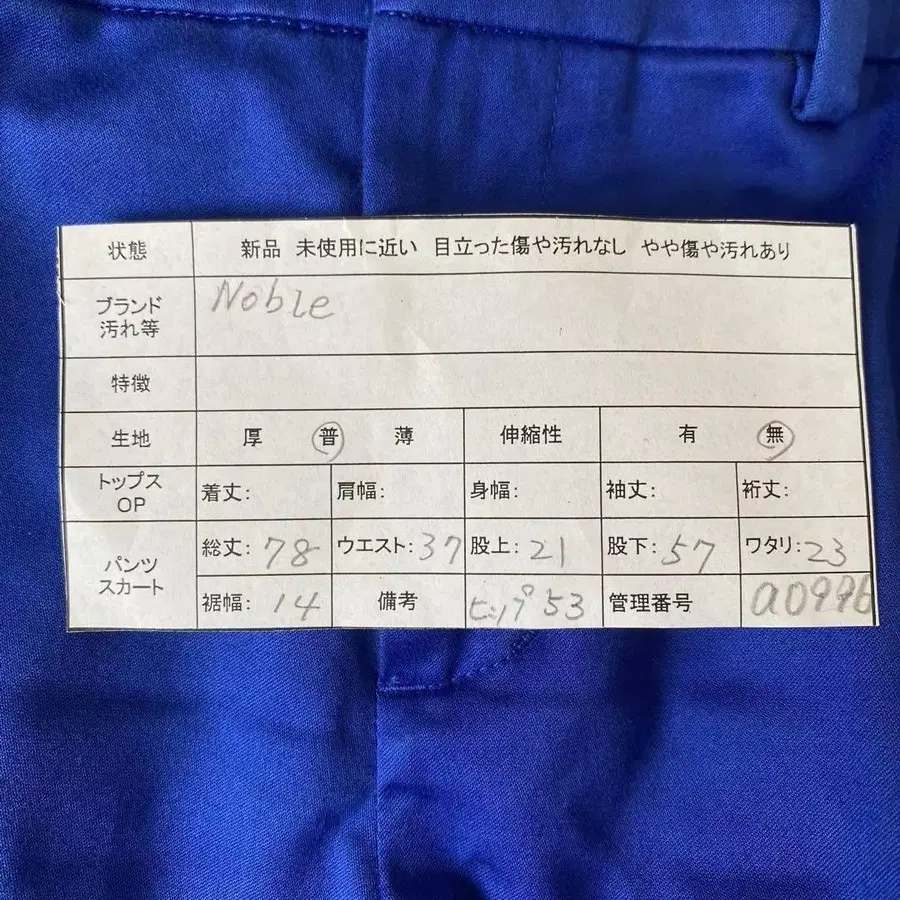 状態 新品 未使用に近い 目立った傷や汚れなし やや傷や汚れあり
ブランド Noble
汚れ等
特徴
生地 厚 普 薄 伸縮性 有 無
トップス
OP 着丈: 肩幅: 身幅: 袖丈: 裄丈:
パンツ
スカート
総丈: 78 ウエスト: 37 股上: 21 股下: 57 ワタリ: 23
裾幅: 14 備考 ヒップ 53 管理番号 a0996